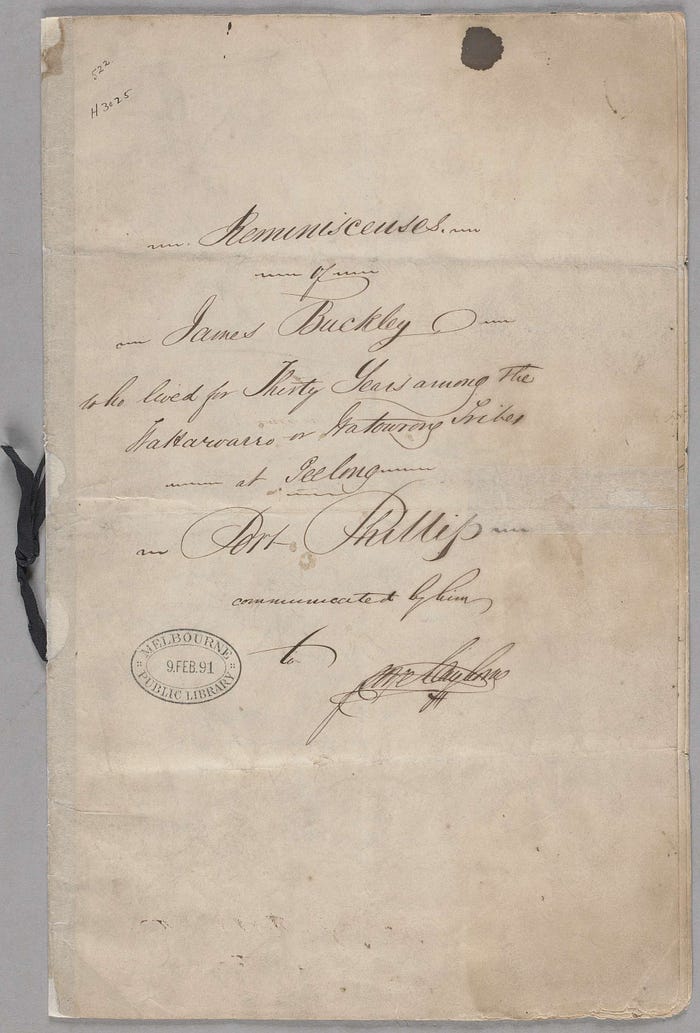 522
H3025
Reminiscenses.
of
James Buckley
who lived for Thirty Years among the
Wallawarro or Watowrong Tribes
at Geelong
Port Phillip
communicated by him
to
MELBOURNE
9.FEB.91
PUBLIC LIBRARY